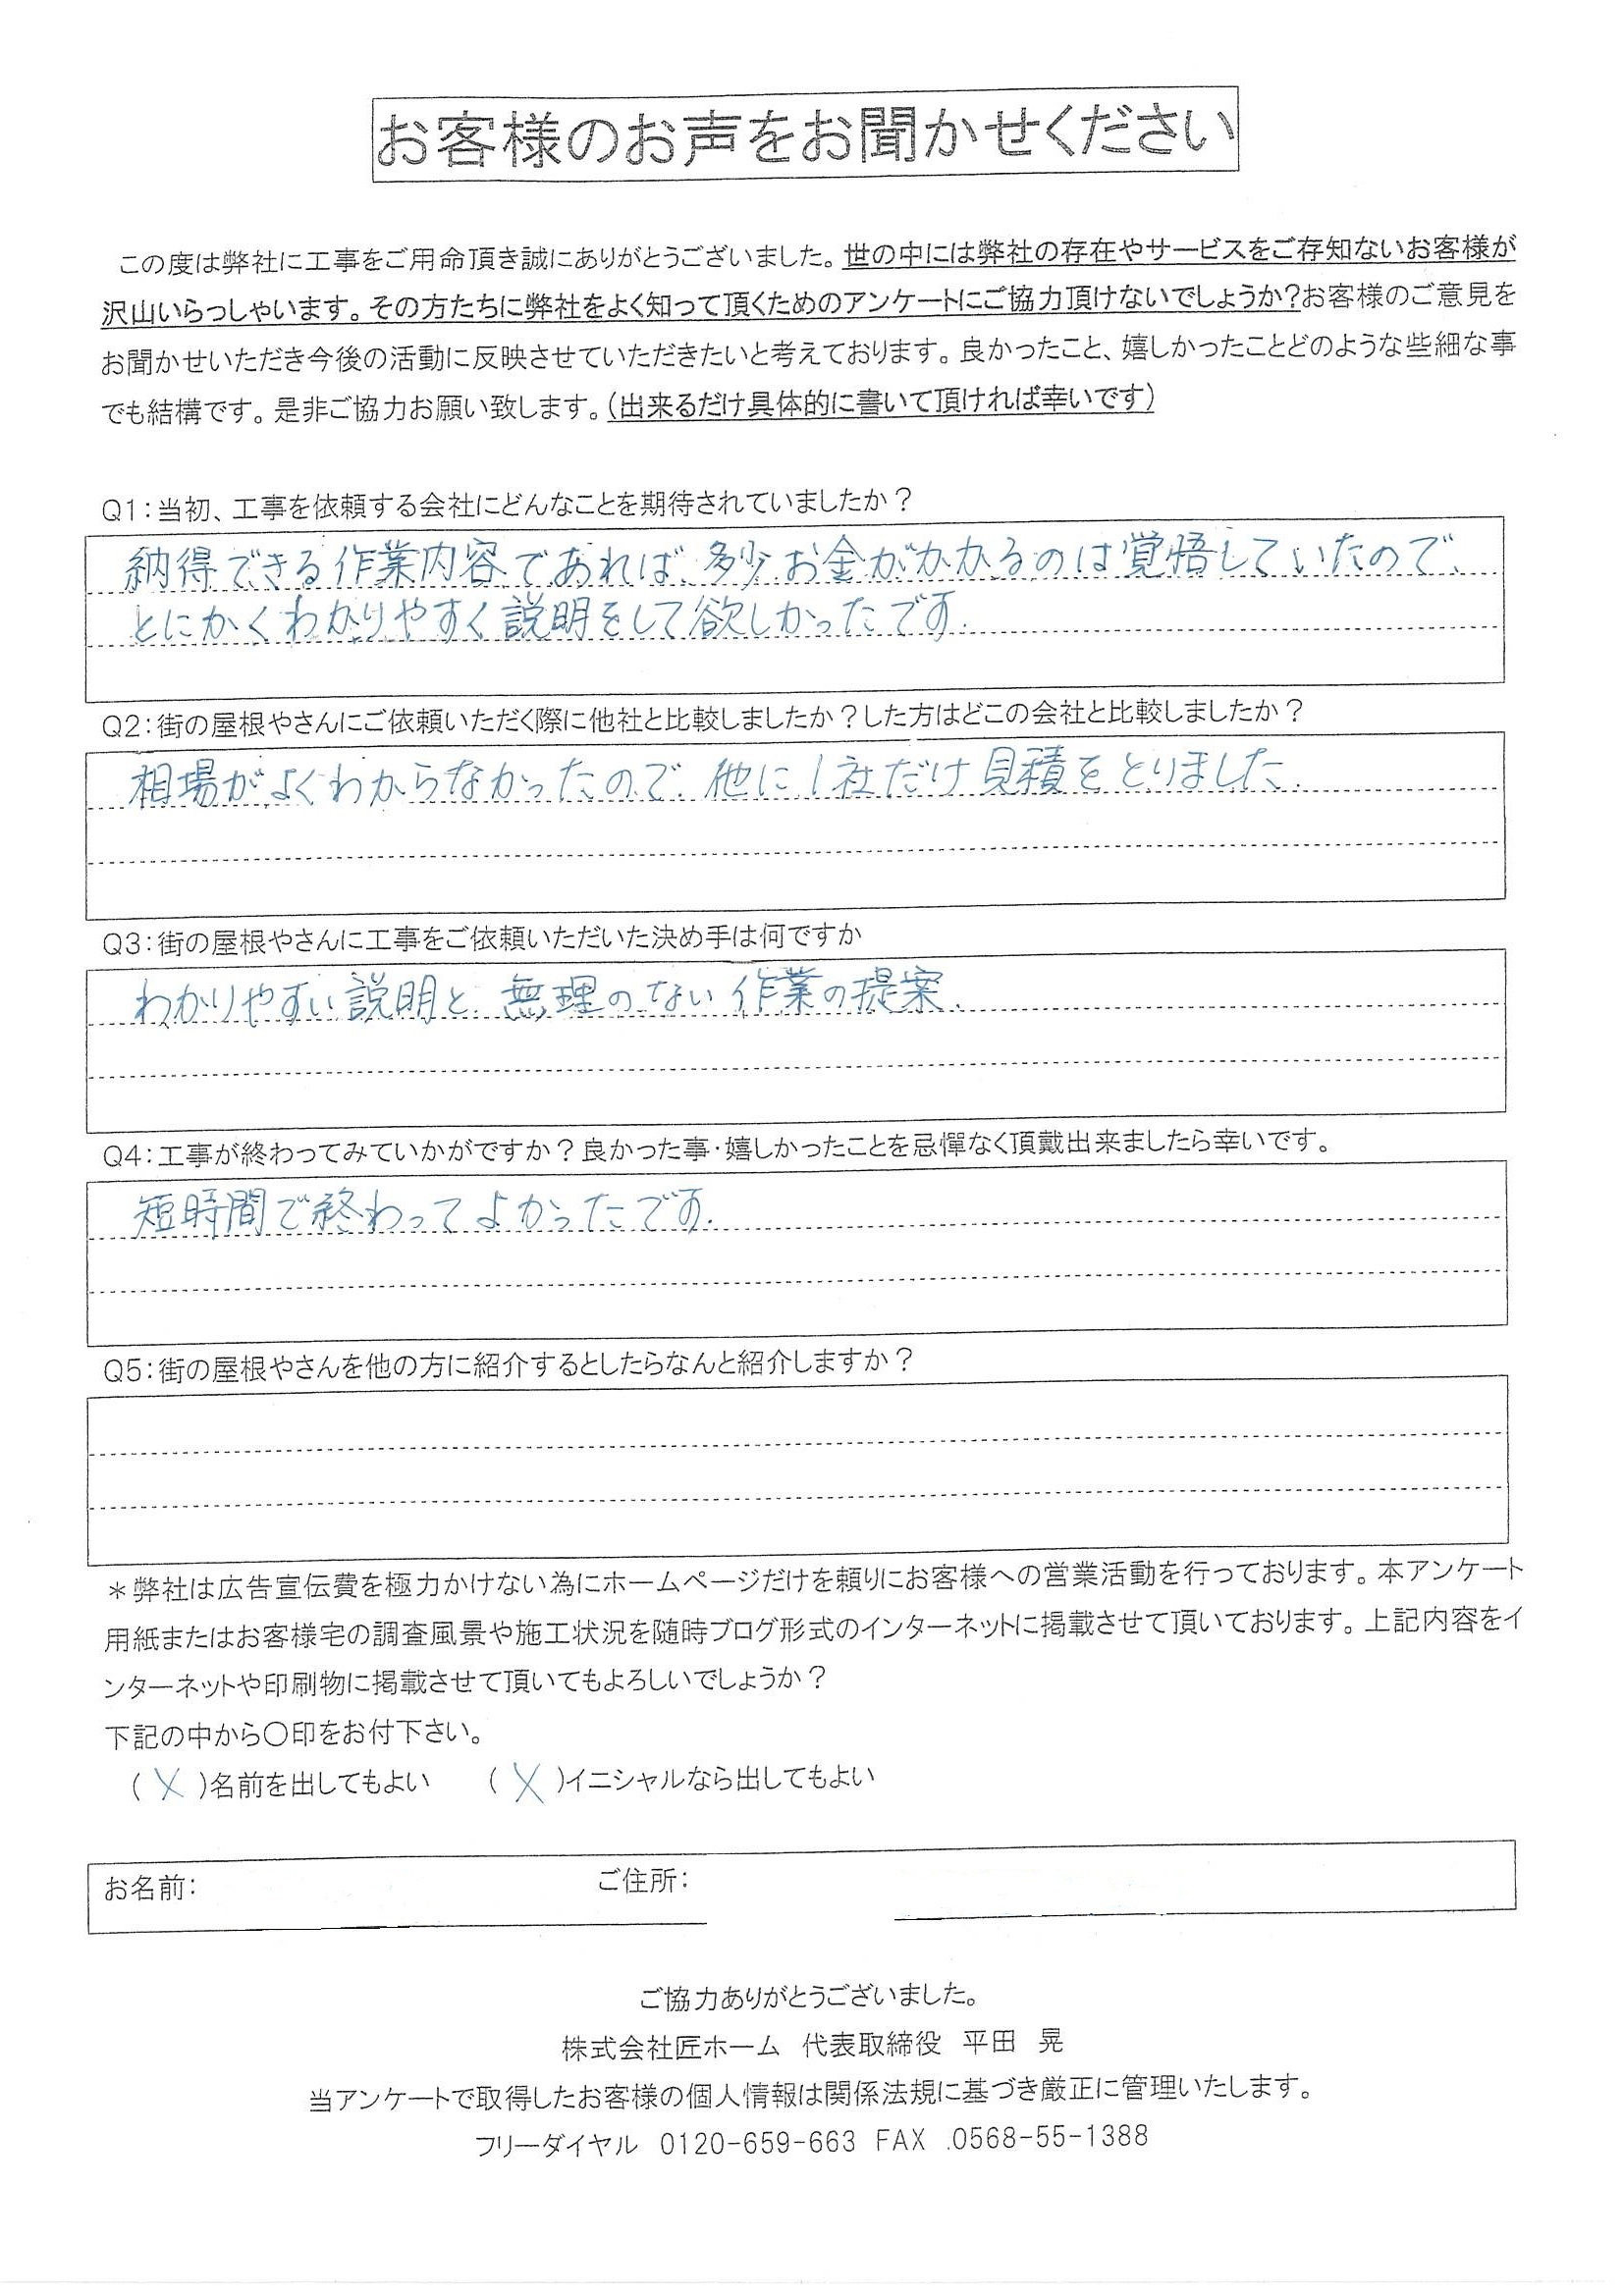 お客様のお声をお聞かせください
この度は弊社に工事をご用命頂き誠にありがとうございました。世の中には弊社の存在やサービスをご存知ないお客様が
沢山いらっしゃいます。その方たちに弊社をよく知って頂くためのアンケートにご協力頂けないでしょうか?お客様のご意見を
お聞かせいただき今後の活動に反映させていただきたいと考えております。良かったこと、嬉しかったことどのような些細な事
でも結構です。是非ご協力お願い致します。(出来るだけ具体的に書いて頂ければ幸いです)
Q1:当初、工事を依頼する会社にどんなことを期待されていましたか?
納得できる作業内容であれば、多少お金がかかるのは覚悟していたので、
とにかくわかりやすく説明をして欲しかったです.
Q2:街の屋根やさんにご依頼いただく際に他社と比較しましたか?した方はどこの会社と比較しましたか?
相場がよくわからなかったので、他に1社だけ見積をとりました.
Q3:街の屋根やさんに工事をご依頼いただいた決め手は何ですか
わかりやすい説明と、無理のない作業の提案.
Q4:工事が終わってみていかがですか?良かった事・嬉しかったことを忌憚なく頂戴出来ましたら幸いです。
短時間で終わってよかったです.
Q5:街の屋根やさんを他の方に紹介するとしたらなんと紹介しますか?
*弊社は広告宣伝費を極力かけない為にホームページだけを頼りにお客様への営業活動を行っております。本アンケート
用紙またはお客様宅の調査風景や施工状況を随時ブログ形式のインターネットに掲載させて頂いております。上記内容をイ
ンターネットや印刷物に掲載させて頂いてもよろしいでしょうか?
下記の中から〇印をお付下さい。
(X)名前を出してもよい (X)イニシャルなら出してもよい
お名前: ご住所:
ご協力ありがとうございました。
株式会社匠ホーム 代表取締役 平田 晃
当アンケートで取得したお客様の個人情報は関係法規に基づき厳正に管理いたします。
フリーダイヤル 0120-659-663 FAX .0568-55-1388